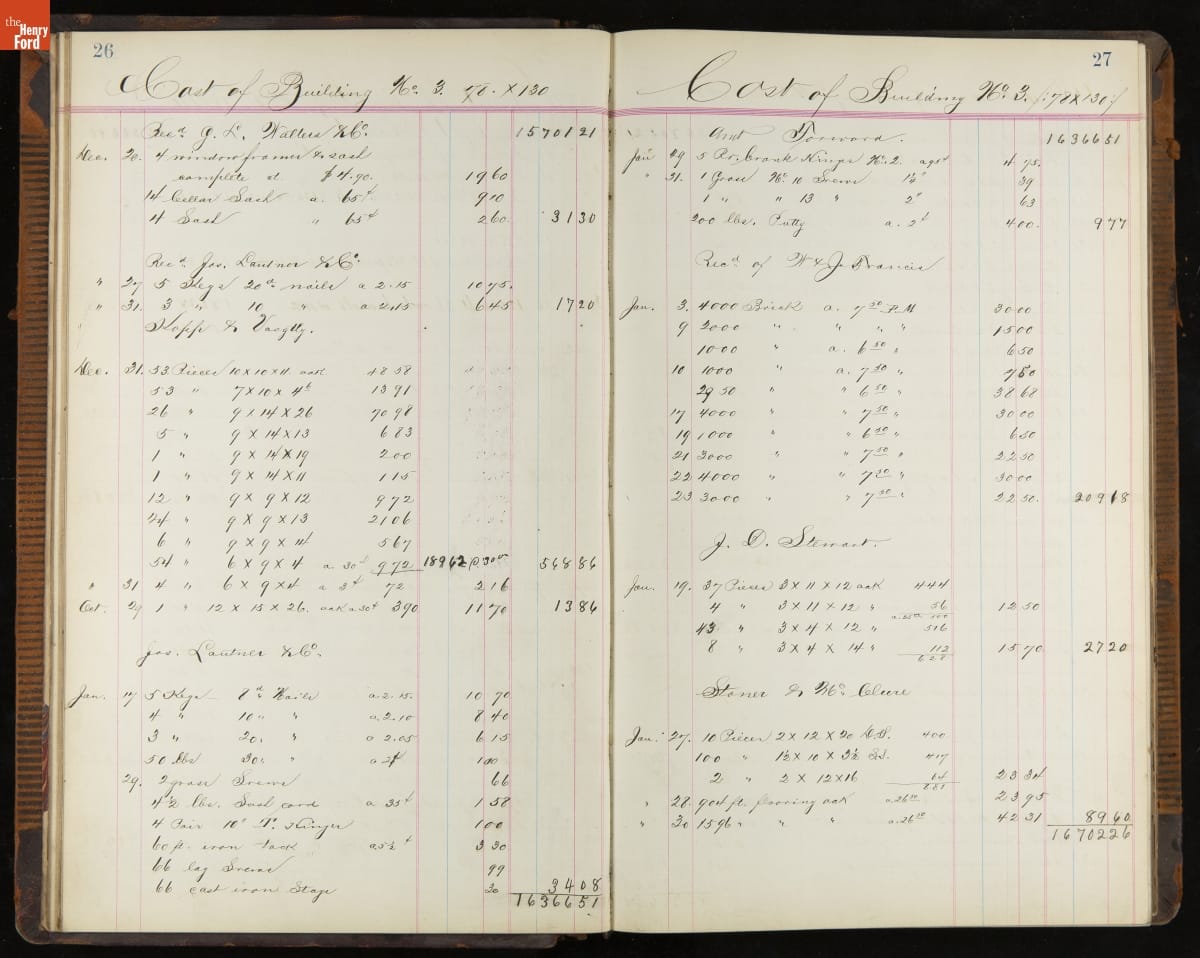 the
Henry
Ford
26
Cost of Building No. 3. 78. X 130
Rec'd G. L. Walters & Co. 15701 21
Dec. 20. 4 window frames & sash
complete at $4.90. 19 60
14 Cellar Sash a. 65¢ 9 10
4 Sash " 65¢ 2 60 31 30
Rec'd Jos. Lautner & Co.
" 27 5 Kegs 20d nails a 2.15 10 75.
" 31. 3 " 10 " a 2.15 6 45 17 20
Kopp & Voegtly.
Dec. 31. 53 Pieces 10 X 10 X 11 oak 48 58
53 " 7 X 10 X 4½ 13 91
26 " 9 X 14 X 26 70 98
5 " 9 X 14 X 13 6 83
1 " 9 X 14 X 19 2 00
1 " 9 X 14 X 11 1 15
12 " 9 X 9 X 12 9 72
44 " 9 X 9 X 13 21 06
6 " 9 X 9 X 14 5 67
54 " 6 X 9 X 4 a. 30 972 18962 @ 30 568 86
" 31 4 " 6 X 9 X 4 a 3¢ 72 2 16
Oct. 29 1 " 12 X 15 X 26. oak a 30 390 11 70 13 86
Jos. Lautner & Co.
Jan. 17 5 Kegs 8d Nails a 2.15. 10 70
4 " 10 " " a 2.10 8 40
3 " 20. " a 2.05 6 15
50 lbs 30 " " a 2¢ 1 00
29. 2 gross Screws 66
4½ lbs. Sash cord a 35¢ 1 58
4 Pair 10" T. Hinges 1 00
60 ft. iron tack a 5½ ¢ 3 30
66 lag Screws 99
66 cast iron Stage 30 34 08
16366 51
27
Cost of Building No. 3. (78 X 130)
Amt Forward. 16366 51
Jan 29 5 Pr. crank Hinges No. 2. a 95¢ 4 75.
" 31. 1 Gross No. 10 Screws 1½" 39
1 " " 13 " 2" 63
200 lbs. Putty a. 2¢ 4 00. 9 77
Rec'd of W & J. Francis
Jan. 3. 4000 Brick a. 7 50 P. M 30 00
9 2000 " " " " 15 00
1000 " a. 6 50 " 6 50
10 1000 " a. 7 50 " 7 50
29 50 " " 6 50 " 38 68
17 4000 " " 7 50 " 30 00
19 1000 " " 6 50 " 6 50
21 3000 " " 7 50 " 22 50
22 4000 " " 7 50 " 30 00
23 3000 " " 7 50 " 22 50. 209 18
J. D. Stewart.
Jan. 19. 37 Pieces 3 X 11 X 12 oak 444
4 " 3 X 11 X 12 " 56 12 50
43 " 3 X 4 X 12 " 516
8 " 3 X 4 X 14 " 112 15 70 27 20
628
Stoner & McClure
Jan. 27. 10 Pieces 2 X 12 X 20 400
100 " 1½ X 10 X 3½ 417
2 " 2 X 12 X 16 64 23 34
881
" 28. 904 ft. flooring oak a. 26 50 23 95
" 30 1596 " " " a. 26 50 42 31 89 60
16702 26